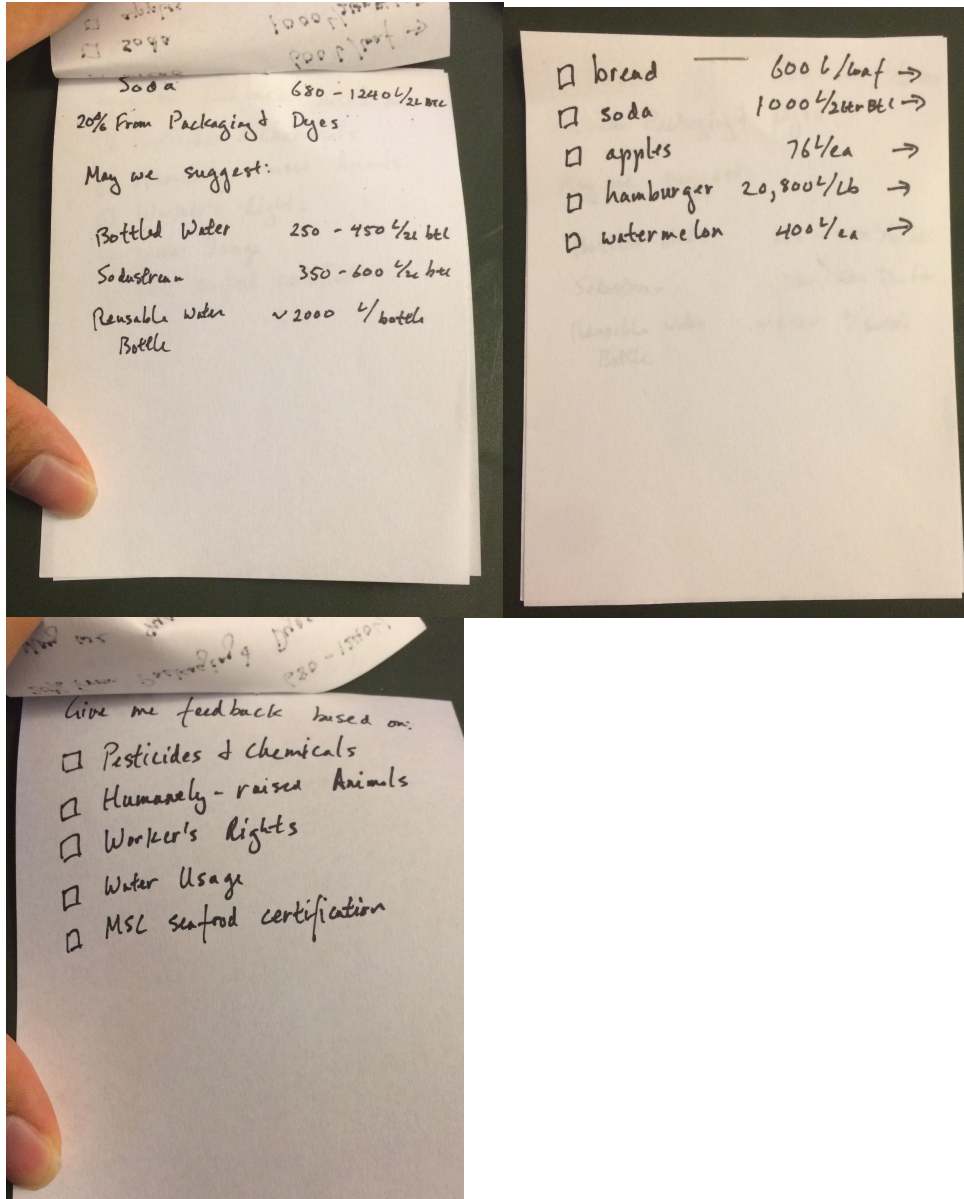 apples
soda 600 L/loaf →
Soda 680 - 1240 L/2L BTL
20% From Packaging & Dyes
May we suggest:
Bottled Water 250 - 450 L/2L btl
Sodastream 350 - 600 L/2L btl
Reusable Water ~ 2000 L/bottle
Bottle
bread 600 L/loaf →
soda 1000 L/2ltr Btl →
apples 76 L/ea →
hamburger 20,800 L/Lb →
watermelon 400 L/ea →
May we
20% From Packaging & Dyes
680 - 1240
Give me feedback based on:
Pesticides & Chemicals
Humanely - raised Animals
Worker's Rights
Water Usage
MSC seafood certification